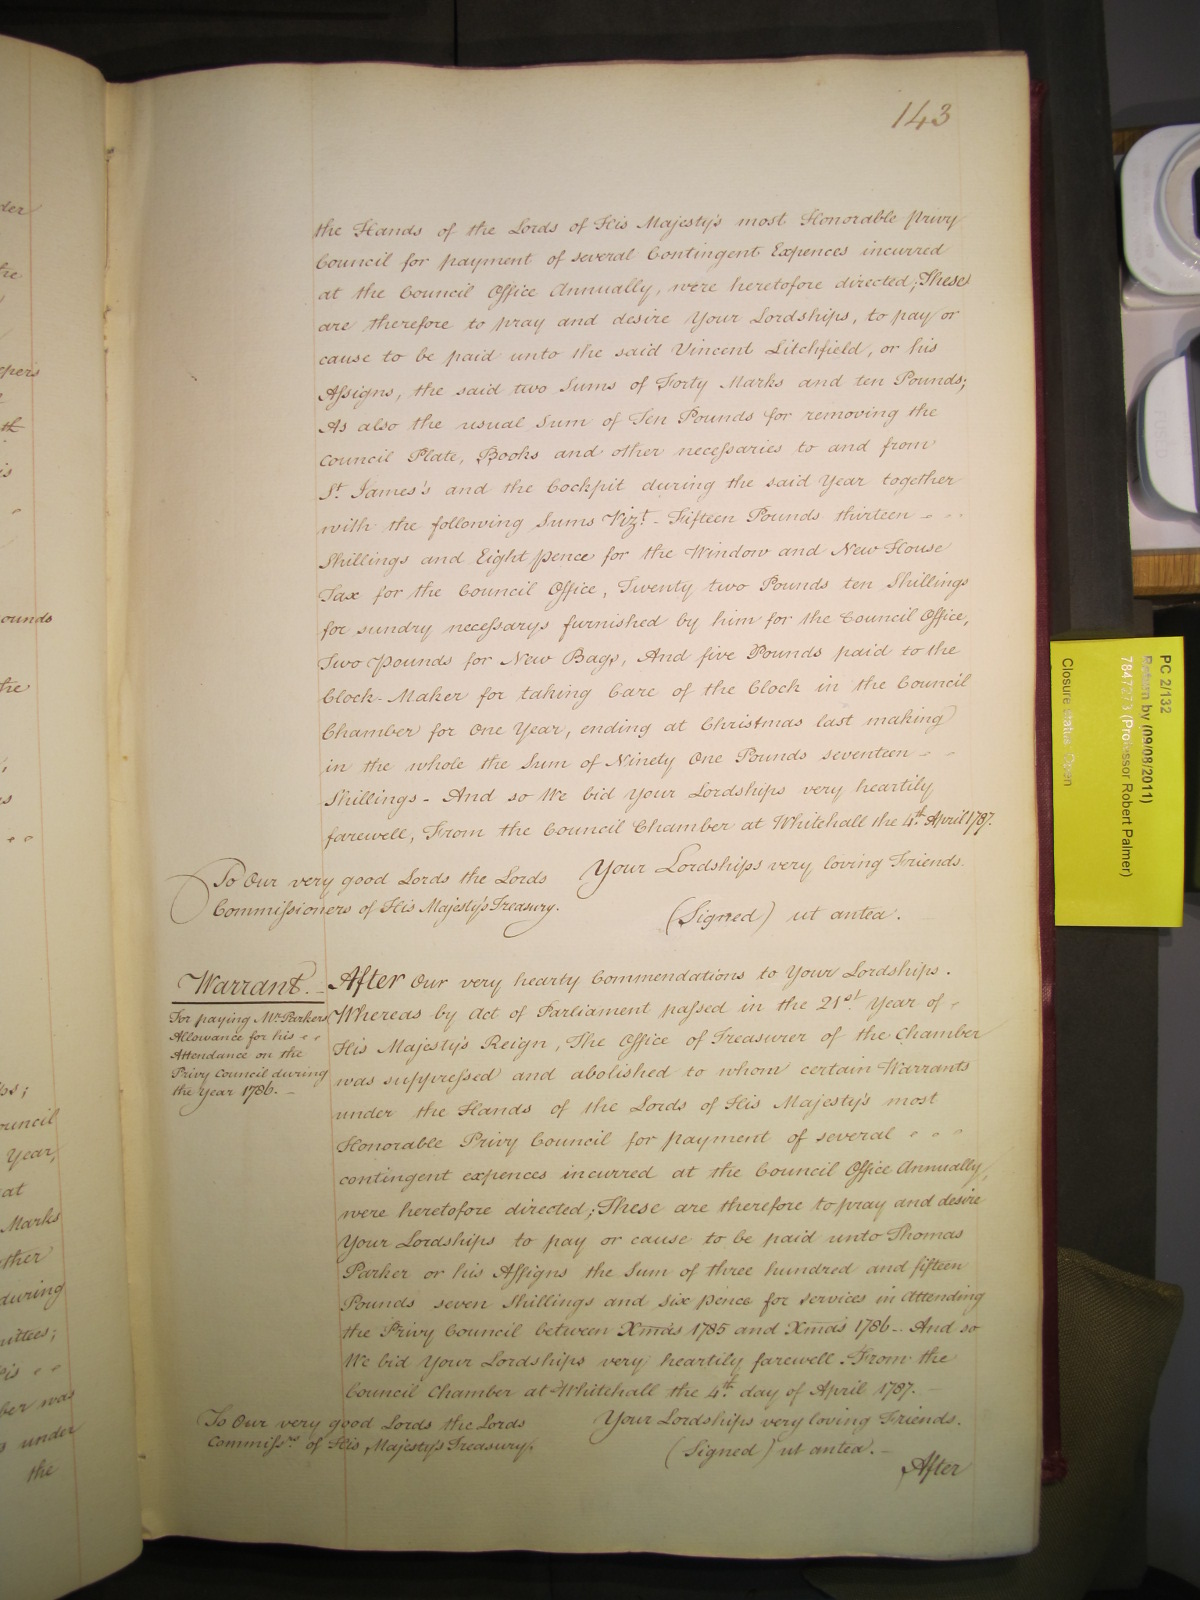 143
the Hands of the Lords of His Majesty's most Honorable Privy
Council for payment of several Contingent Expences incurred
at the Council Office Annually, were heretofore directed; These
are therefore to pray and desire Your Lordships, to pay or
cause to be paid unto the said Vincent Litchfield, or his
Assigns, the said two Sums of Forty Marks and ten Pounds;
As also the usual Sum of Ten Pounds for removing the
Council Plate, Books and other necessaries to and from
St. James's and the Cockpit during the said Year together
with the following Sums Vizt. - Fifteen Pounds thirteen - - -
Shillings and Eight pence for the Window and New House
Tax for the Council Office, Twenty two Pounds ten Shillings
for sundry necessarys furnished by him for the Council Office,
Two Pounds for New Bags, And five Pounds paid to the
Clock-Maker for taking Care of the Clock in the Council
Chamber for One Year, ending at Christmas last making
in the whole the Sum of Ninety One Pounds seventeen - -
Shillings - And so We bid Your Lordships very heartily
farewell, From the Council Chamber at Whitehall the 4th. April 1787.
To Our very good Lords the Lords
Commissioners of His Majesty's Treasury.
Your Lordships very loving Friends.
(Signed) ut antea.
Warrant. -
For paying Mr. Parkers
Allowance for his - -
Attendance on the
Privy Council during
the Year 1786. -
After Our very hearty Commendations to Your Lordships.
Whereas by Act of Parliament passed in the 21st. Year of -
His Majesty's Reign, The Office of Treasurer of the Chamber
was suppressed and abolished to whom certain Warrants
under the Hands of the Lords of His Majesty's most
Honorable Privy Council for payment of several - - -
contingent expences incurred at the Council Office Annually,
were heretofore directed; These are therefore to pray and desire
Your Lordships to pay or cause to be paid unto Thomas
Parker or his Assigns the Sum of three hundred and fifteen
Pounds seven Shillings and six pence for services in Attending
the Privy Council between Xmas 1785 and Xmas 1786 - And so
We bid Your Lordships very heartily farewell. From the
Council Chamber at Whitehall the 4th. day of April 1787. -
To Our very good Lords the Lords
Commissrs. of His Majesty's Treasury.
Your Lordships very loving Friends.
(Signed) ut antea. -
After
PC 2/132
Return by (09/08/2011)
(Professor Robert Palmer)
Closure status Open
ounds
Year,
at
Marks
during
under
the